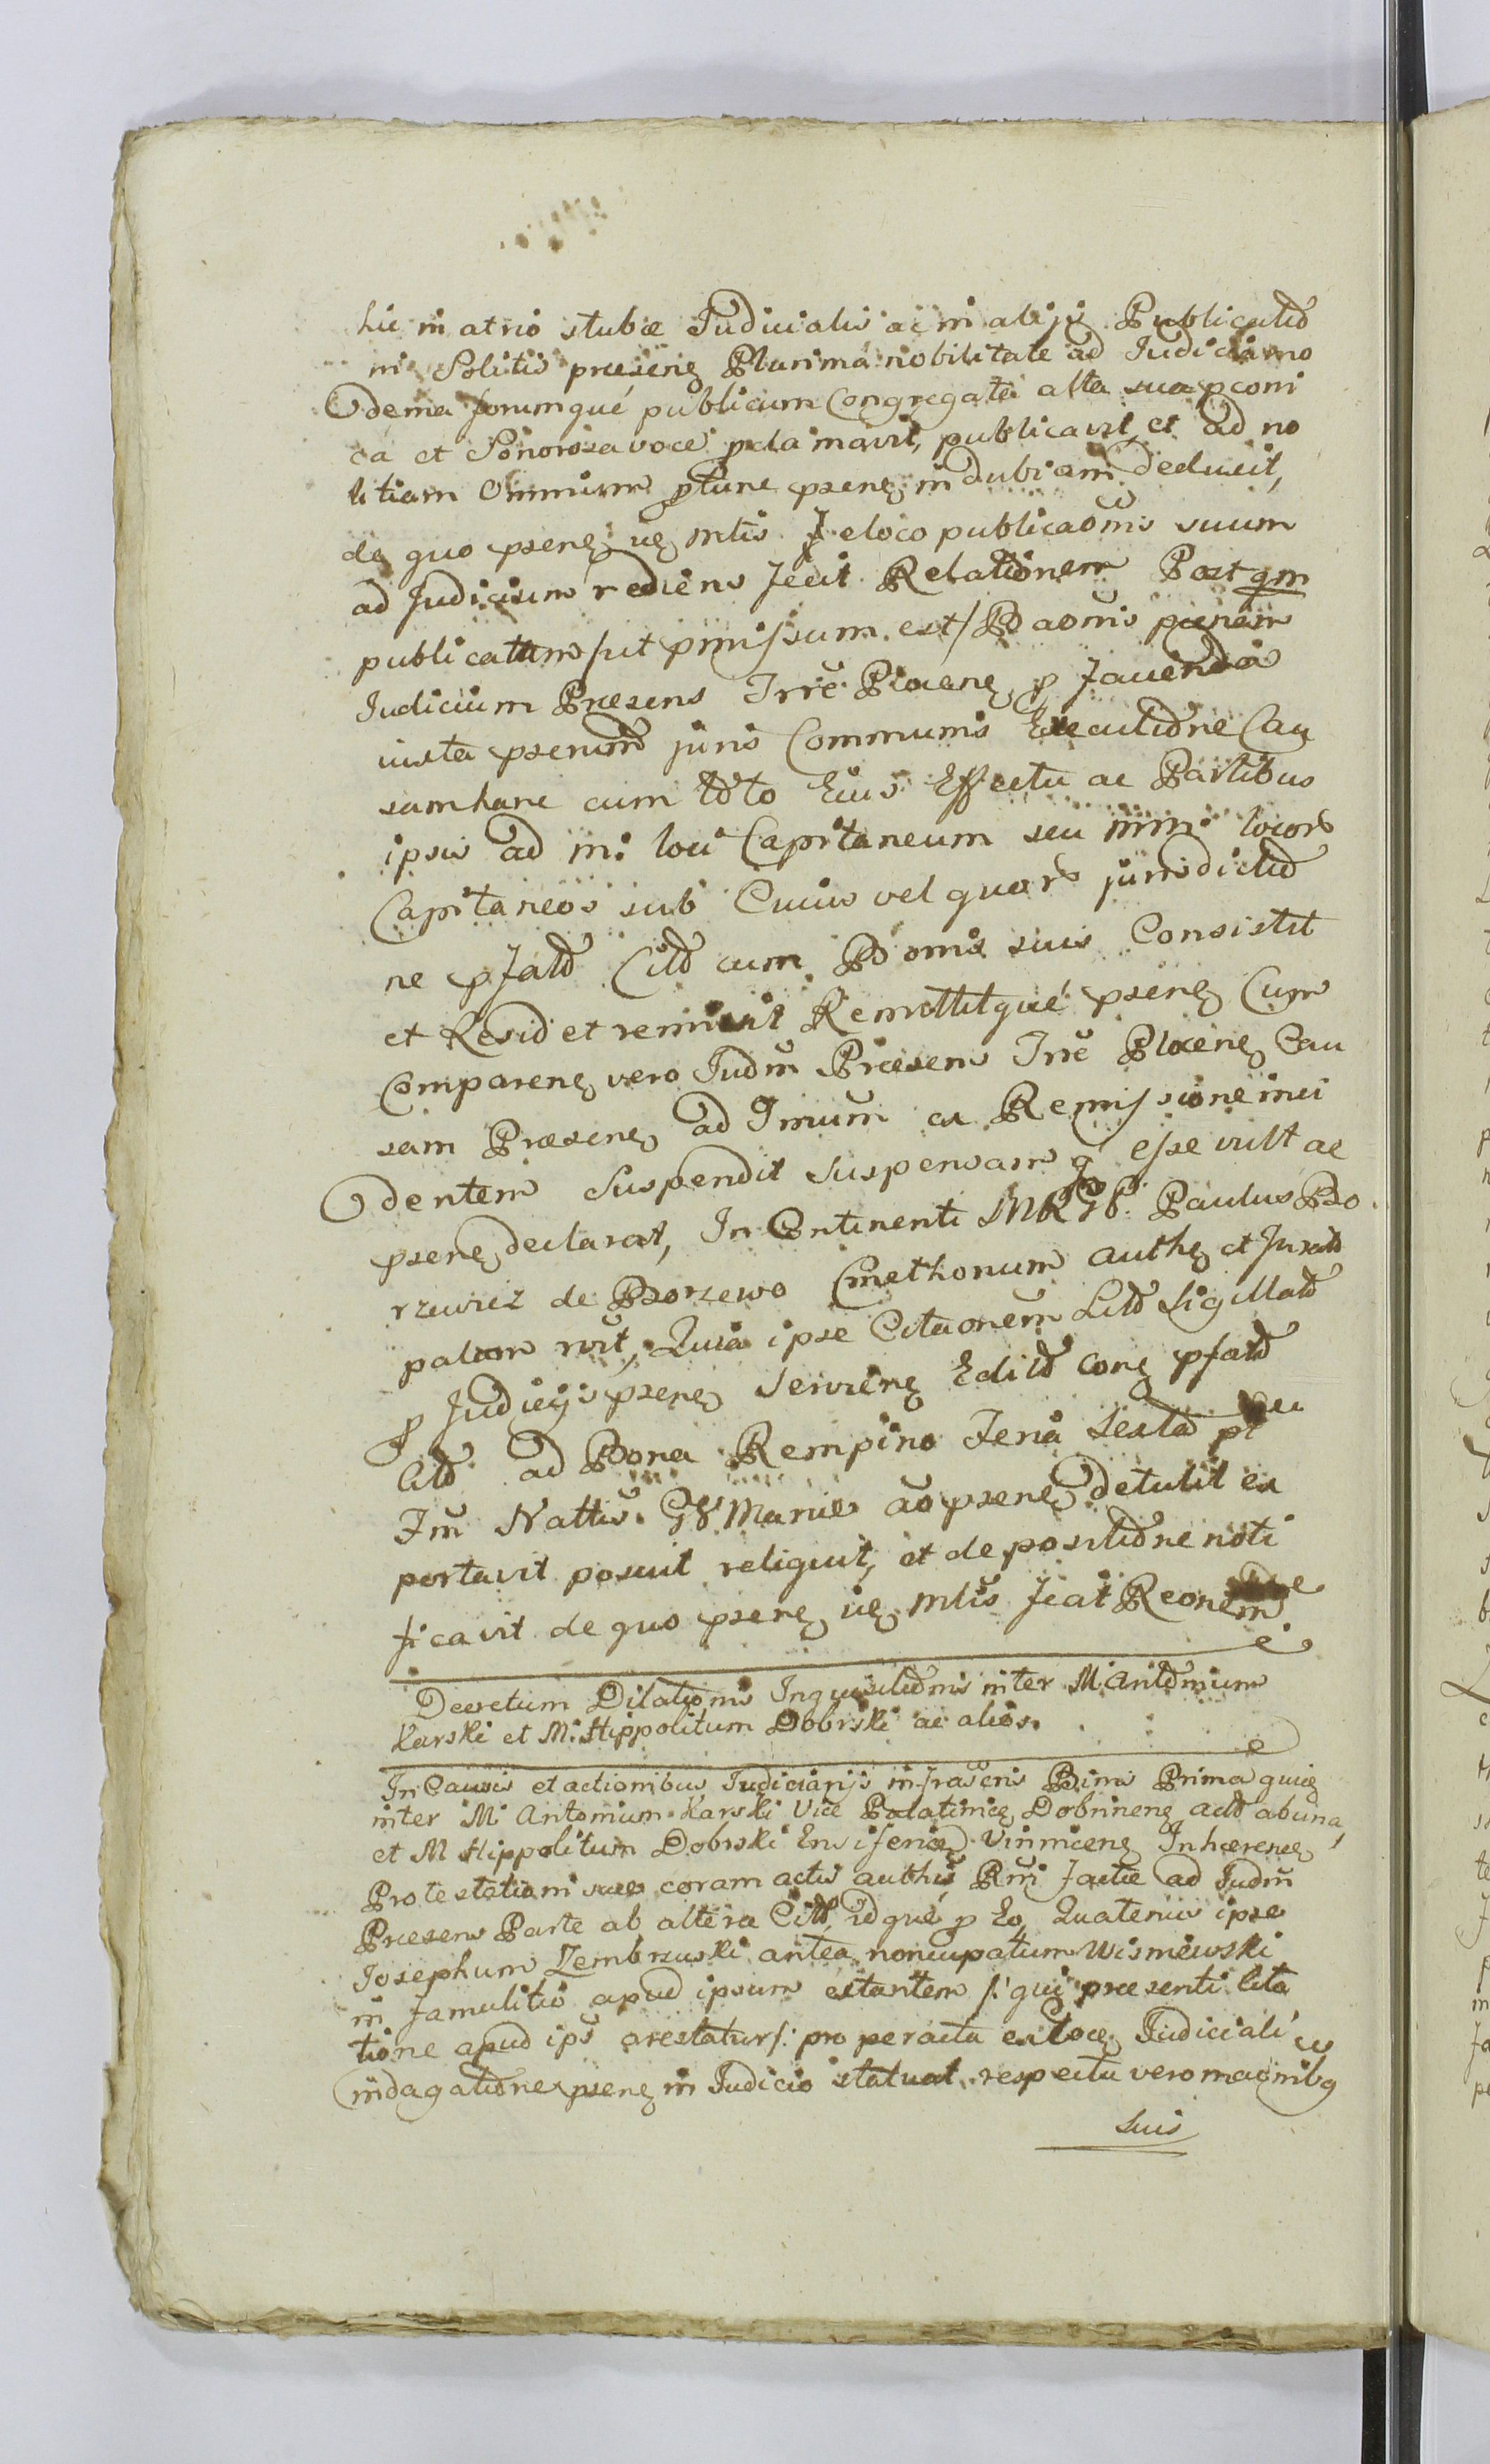 hic in atrio stubæ Judicialis ac in alijs Publicatio
ni Solitis præsene Plurima nobilitate ad Judicia mo
derna forumqué publicum Congregata alta sua pconi
ca et Sonorosa voce pclamavit, publicavit et ad no
titiam Omnium ptunc psene indubiam deduxit,
de quo psene ue mtis eloco publicaonis suum
ad Judicium rediens fecit Relationem Post qm
publicatum /ut pmissum est/ Baonis pænam
Judicium Præsens Trre Plocene p facienda
iuxta psenm juris Communis Executione Cau
sam hanc cum toto Eius Effectu ac Partibus
ipsis ad m: loci Capitaneum seu mm: locor
Capitaneos sub Cuius vel quor jurisdictio
ne pfato Cito cum Bonis suis Consistit
et Residet remisit Remittitqué psene Cum
Comparene vero Judm Præsens Trre Plocene Cau
sam Præsene ad Tmum ex Remissione inci
dentem Suspendit suspensam q esse vult ac
psene declarat, In Continenti MR Gl: Paulus Bo
rzewicz de Borzewo Cmethonum authe et Jurato
palam rvit, Quia ipse Citaonem Lito Sigillato
p Judicijs psene Serviene Edito cone pfato
Cito ad Bona Rempino Feria Sexta pt
Fm Nattis G V Mariæ ao psene detulit ex
portavit posuit reliquit, et de positione noti
ficavit de quo psene ue mtis fecit Reonem
Decretum Dilationis Inquisitionis inter M Antonium
Karski et M: Hippolitum Dobrski ac alios.
In Causis et actionibus Judiciarijs infrascris Binis Prima quie
inter M: Antonium Karski Vice Palatinice Dobrinene acto ab una,
et M Hippolitum Dobrski Ensiferice Vinnicene Inhærene
Protestationi suæ coram actis authis Rmi factæ ad Judm
Præsens Parte ab altera Cito, idqué p Eo, Quatenus ipse
Josephum Zembrzuski antea noncupatum Wisniewski
in famulitio apud ipsum estantem /: qui præsenti Cita
tione apud ips arestatur /: pro peracta ex loco Judiciali
indagatione psene in Judicio statuat respectu vero
Suis